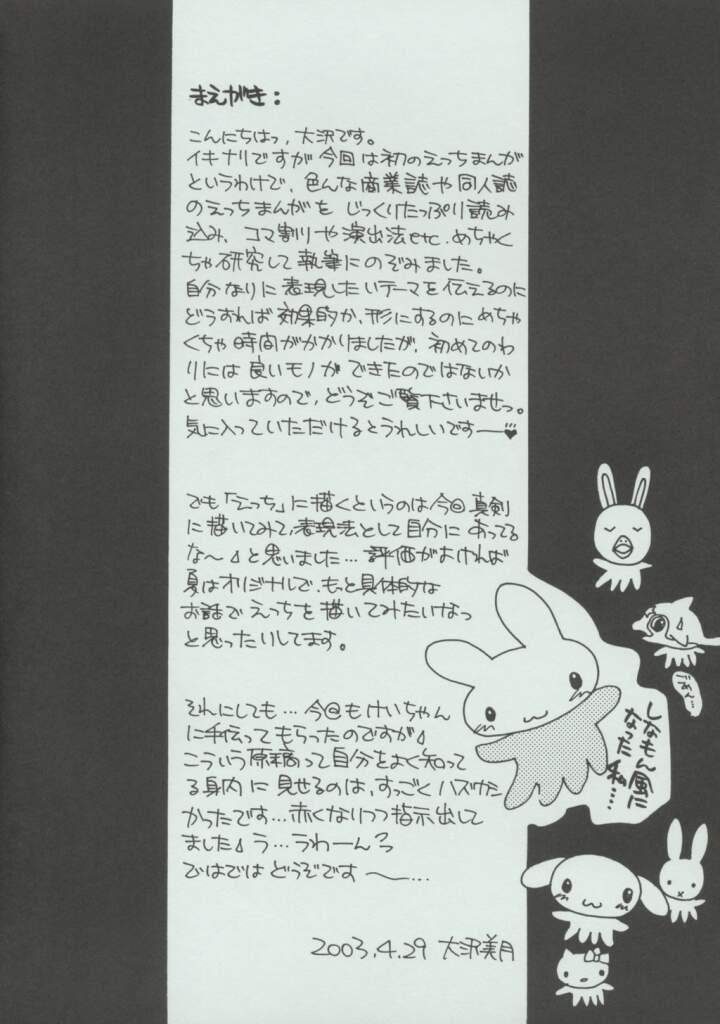 まえがき：
こんにちはっ，大沢です。
イキナリですが今回は初のえっちまんが
というわけで、色んな商業誌や同人誌
のえっちまんがを じっくりたっぷり読み
込み、コマ割りや演出法etc.めちゃく
ちゃ研究して執筆にのぞみました。
自分なりに表現したいテーマを伝えるのに
どうすれば効果的か、形にするのにめちゃ
くちゃ時間がかかりましたが、初めてのわ
りには良いモノができたのではないか
と思いますので、どうぞご覧下さいませっ。
気に入っていただけるとうれしいですー♥
でも「えっち」に描くというのは今回真剣
に描いてみて、表現法として自分にあってる
な〜♪と思いました…評価がよければ
夏はオリジナルで、もっと具体的な
お話でえっちを描いてみたいなっ
と思ったりしてます。
それにしても…今回もけいちゃん
に手伝ってもらったのですが♪
こういう原稿って自分をよく知って
る身内に見せるのは、すっごくハズかし
かったです…赤くなりつつ指示出して
ました♪う…うわーん
ではではどうぞです〜…
2003.4.29 大沢美月
ごめん…
しなもん風に
なった私…